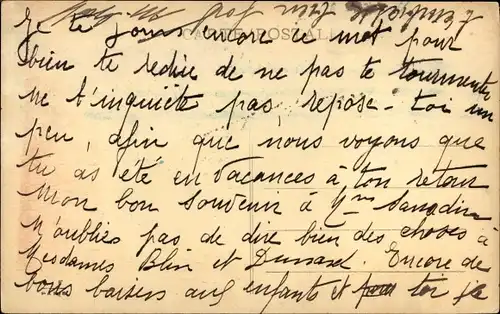 CARTE POSTALE
Je te joins encore ce mot pour
bien te redire de ne pas te tourmenter
ne t'inquiète pas, repose-toi un
peu, afin que nous voyons que
tu as été en vacances à ton retour
Mon bon souvenir à Mme
N'oublies pas de dire bien des choses à
Mesdames Blin et Encore de
bons baisers aux enfants et pour toi je